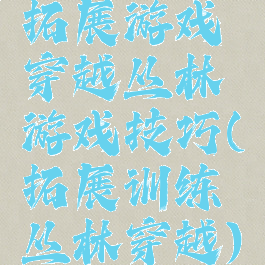 拓展游戏
穿越丛林
游戏技巧(
拓展训练
丛林穿越)